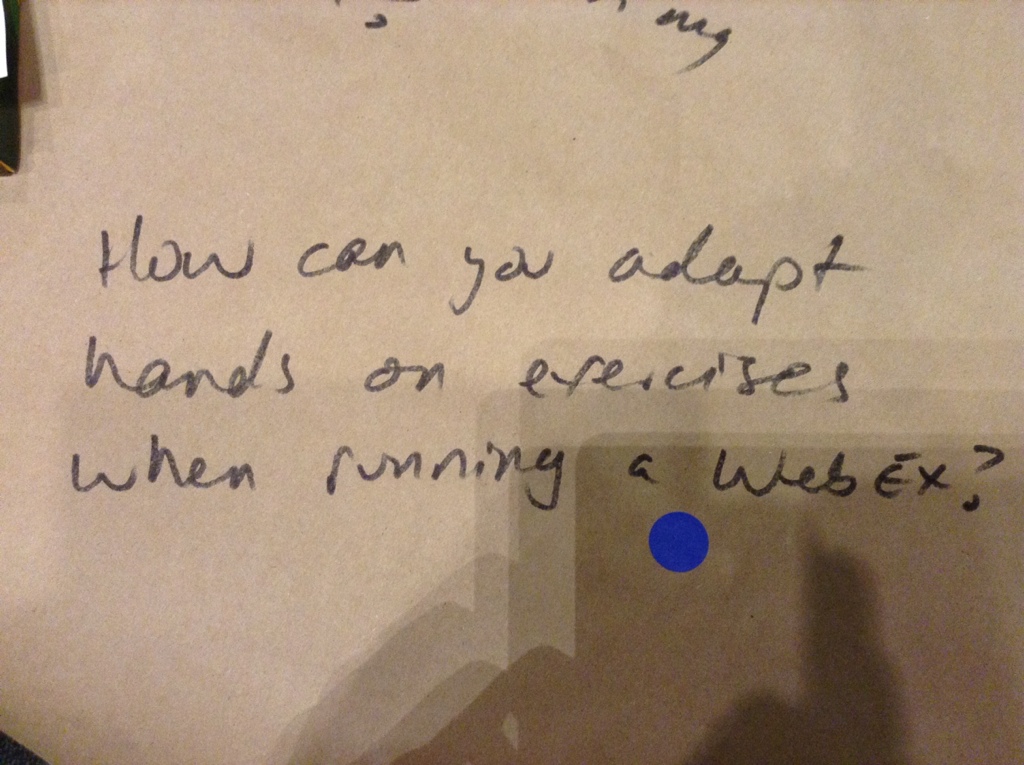 my
How can you adapt
hands on exercises
when running a WebEx?